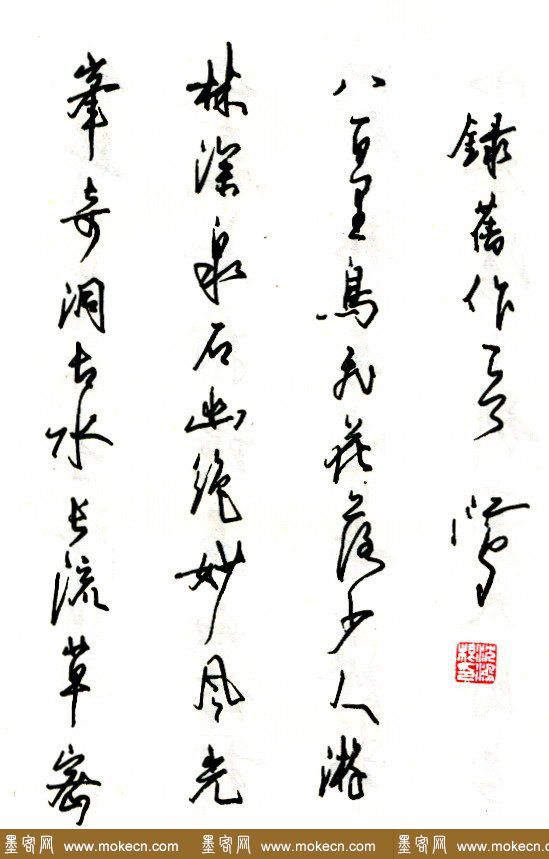 峯奇洞古水长流草密
林深泉石幽绝妙风光
八百里鳥飞花落少人游
録舊作一首
墨客网 www.mokecn.com 墨客网 www.mokecn.com 墨客网 www.mokecn.com